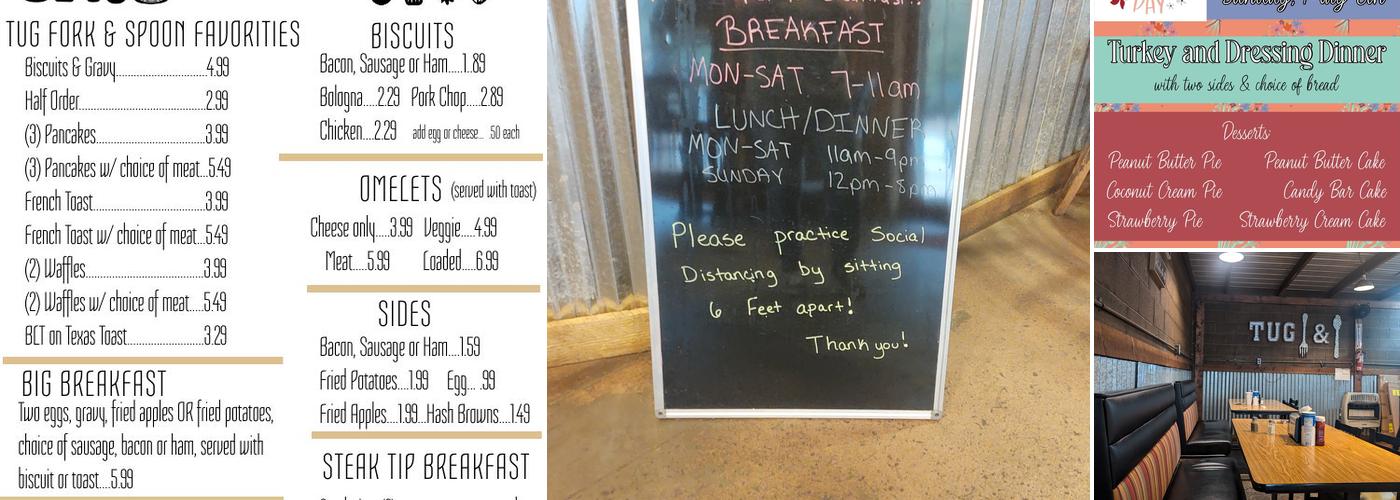 TUG FORK & SPOON FAVORITIES
Biscuits & Gravy..........................4.99
Half Order....................................2.99
(3) Pancakes................................3.99
(3) Pancakes w/ choice of meat...5.49
French Toast................................3.99
French Toast w/ choice of meat...5.49
(2) Waffles..................................3.99
(2) Waffles w/ choice of meat.....5.49
BLT on Texas Toast.....................3.29
BIG BREAKFAST
Two eggs, gravy, fried apples OR fried potatoes,
choice of sausage, bacon or ham, served with
biscuit or toast....5.99
BISCUITS
Bacon, Sausage or Ham.....1.89
Bologna....2.29 Pork Chop....2.89
Chicken....2.29 add egg or cheese... .50 each
OMELETS (served with toast)
Cheese only....3.99 Veggie....4.99
Meat....5.99 Loaded....6.99
SIDES
Bacon, Sausage or Ham....1.59
Fried Potatoes....1.99 Egg... .99
Fried Apples....1.99...Hash Browns....1.49
STEAK TIP BREAKFAST
BREAKFAST
MON-SAT 7-11am
LUNCH/DINNER
MON-SAT 11am-9pm
SUNDAY 12pm-8pm
Please practice Social
Distancing by sitting
6 Feet apart!
Thank you!
DAY
Turkey and Dressing Dinner
with two sides & choice of bread
Desserts:
Peanut Butter Pie Peanut Butter Cake
Coconut Cream Pie Candy Bar Cake
Strawberry Pie Strawberry Cream Cake
TUG &